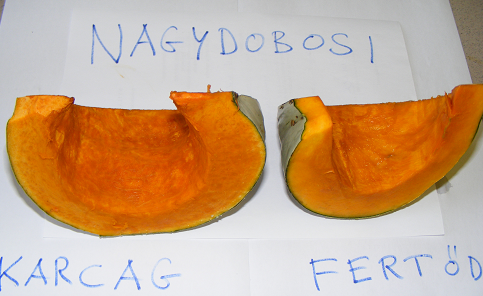 NAGYDOBOSI
KARCAG
FERTŐD